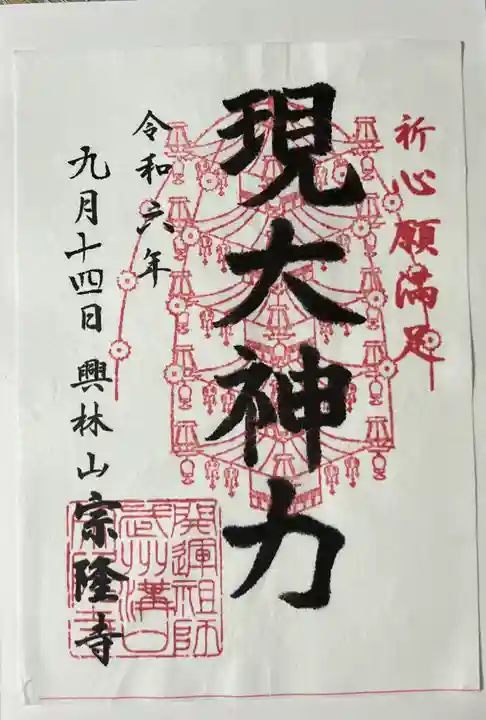 祈心願満足
現大神力
令和六年
九月十四日 興林山 宗隆寺
開運祖師
武州溝口